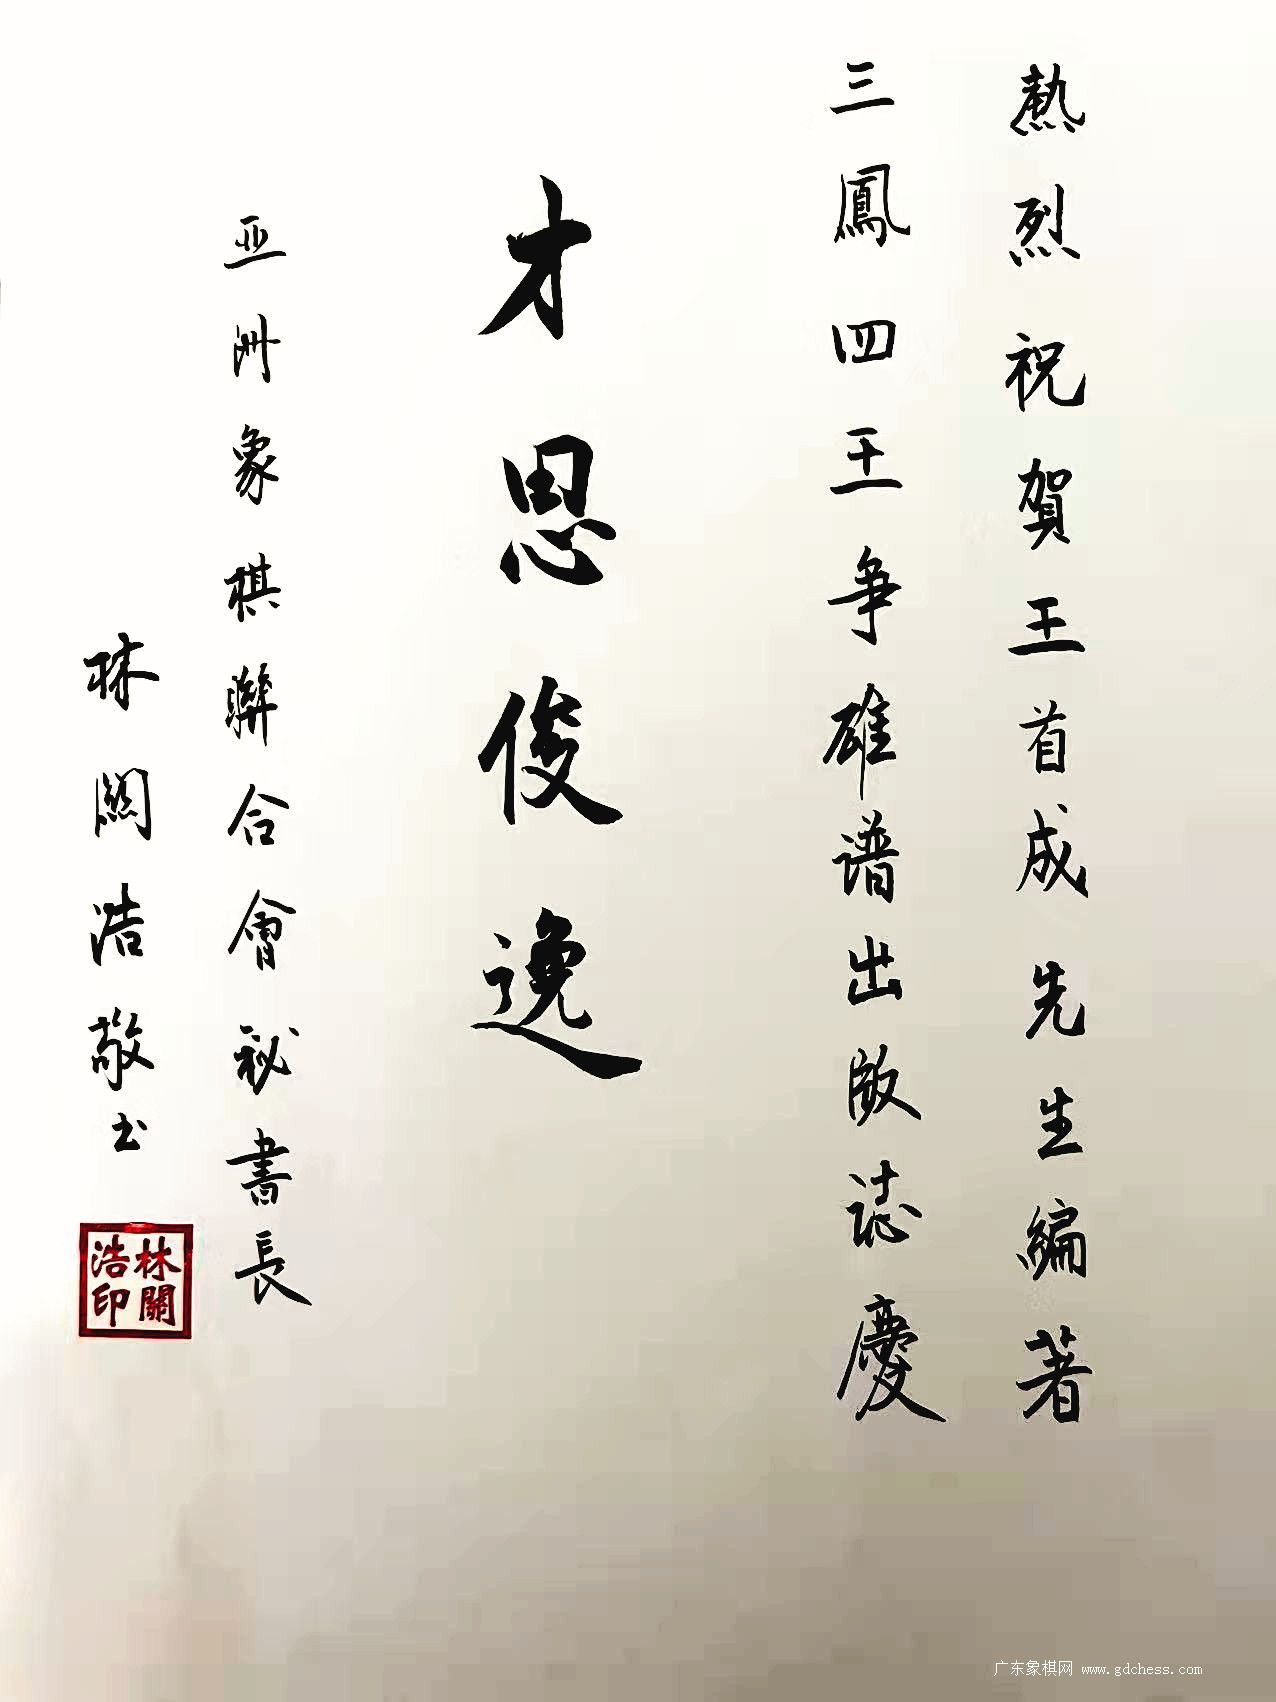 熱烈祝賀王首成先生編著
三鳳四王争雄谱出版誌慶
才思俊逸
亚洲象棋聯合會秘書長
林關浩敬书
林關
浩印
广东象棋网 www.gdchess.com